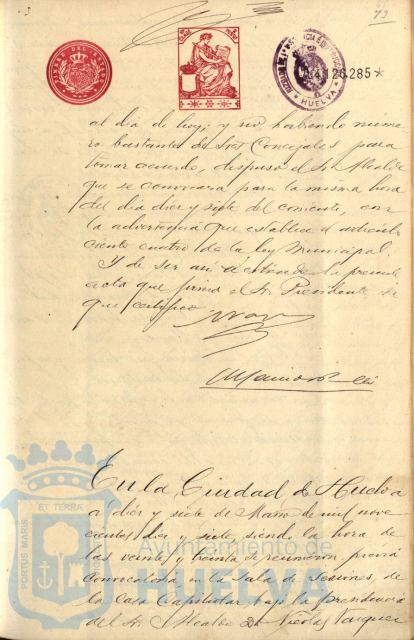 73
TIMBRE DEL ESTADO
A.4126.285*
HUELVA
al dia de hoy; y no habiendo núme
ro bastantes de Sres Concejales para
tomar acuerdo, dispuso el Sr Alcalde
que se convocara para la misma hora
del dia diez y siete del corriente, con
la advertencia que establece el artículo
ciento cuatro de la ley Municipal.
Y de ser asi se extiende la presente
acta que firma el Sr. Presidente de
que certifico
En la Ciudad de Huelva
a diez y siete de Marzo de mil nove
cientos diez y siete, siendo la hora de
las veinte y treinta se reunieron previa
convocatoria en la Sala de Sesiones, de
la Casa Capitular bajo la presidencia
del Sr. Alcalde Dn Nicolas Vazquez
PORTUS MARIS ET TERRAE
Ayuntamiento de
HUELVA